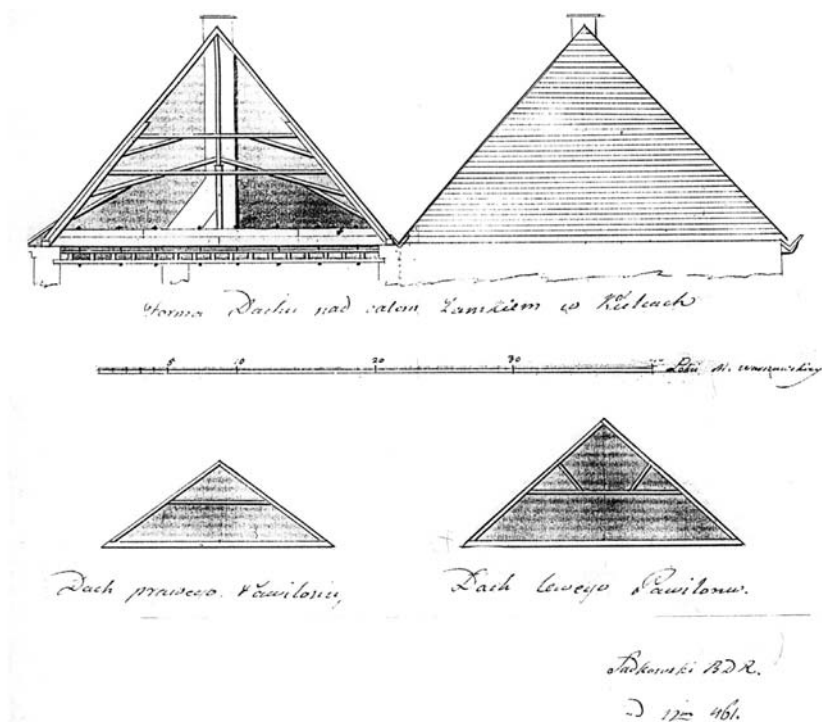 Forma Dachu nad całem Zamkiem w Kielcach
5 10 20 30
Łokci M. Warszawskiey
Dach prawego Pawilonu,
Dach lewego Pawilonu.
B D R.
D